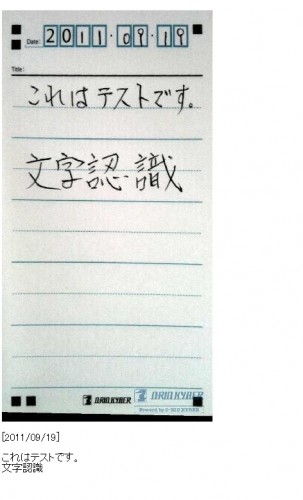 Date: 2011.09.19
Title:
これはテストです。
文字認識
[2011/09/19]
これはテストです。
文字認識